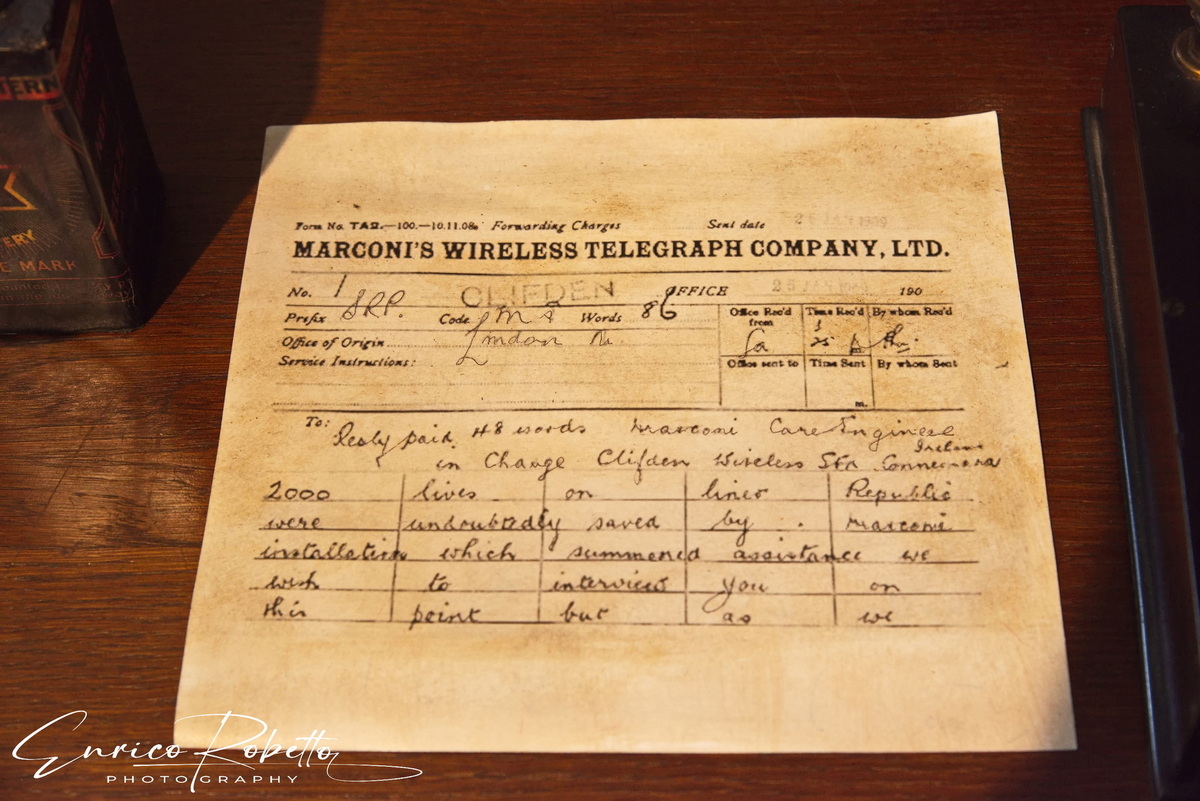 TERN
ERY
E MARK
Form No. TAD.—100.—10.11.08. Forwarding Charges Sent date 26 JAN 1909
MARCONI'S WIRELESS TELEGRAPH COMPANY, LTD.
No. 1 CLIFDEN OFFICE 25 JAN 190
Prefix SRP. Code Words 86 Office Rec'd from Time Rec'd By whom Rec'd
Office of Origin London
Service Instructions: Office sent to Time Sent By whom Sent
m.
To: Reply paid 48 words Marconi Care Engineer
in Change Clifden Wireless Stn Connemara Ireland
2000 lives on liner Republic
were undoubtedly saved by Marconi
installation which summoned assistance we
wish to interview you on
this point but as we
Enrico Robetto
PHOTOGRAPHY